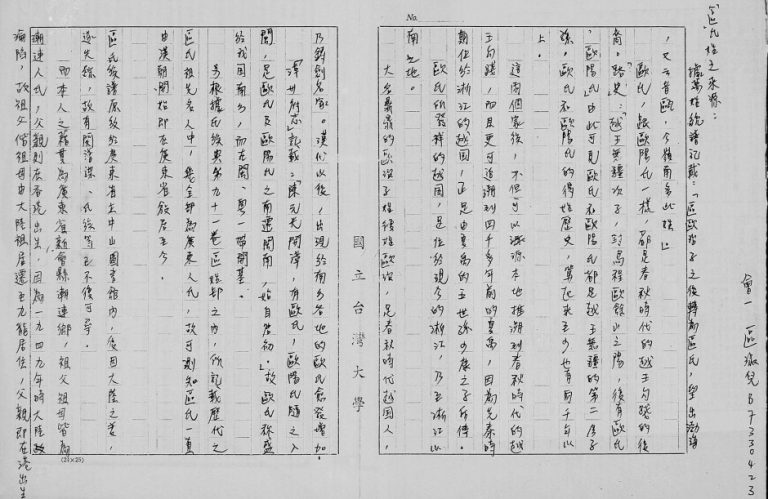 會一 區 兒 B7330423
「區氏姓之來源：
據萬姓統譜記載：「區歐冶子之後轉為區氏，望出渤海
，又云音歐，今嶺南多此姓」
歐氏，跟歐陽氏一樣，都是春秋時代的越王勾踐的後
裔。「路史」：「越王無彊次子，封烏程歐餘山之陽，後有歐氏
、歐陽氏」由此可見歐氏和歐陽氏都是越王無彊的第二房子
孫，歐氏和歐陽氏的得姓歷史，算起來至少也有兩千年以
上。
這兩個家後，不但可以源源本地推溯到春秋時代的越
王勾踐，而且更可追溯到四千多年前的夏禹，因為先秦時
期位於浙江的越國，正是由夏禹的五世孫少康之子所傳。
歐氏所發祥的越國，是位於現今的浙江，乃至浙江以
南之地。
大名鼎鼎的歐冶子姓德姓歐冶，是春秋時代越國人，
No.
國立台灣大學
乃鑄劍名家。漢代以後，出現於南方各地的歐氏愈發增加。
「漳州府志」記載：「陳元光開漳，有歐氏，歐陽氏隨之入
閩，是歐氏及歐陽氏之南遷閩南，始自唐初。」故歐氏稱盛
於我國南方，而在閩、粵一帶開基。
另根據氏族典第九十一卷區姓部之內，所記載歷代之
區氏祖先名人中，幾全部為廣東人氏，故可測知區氏一直
由漢朝開始即在廣東省發展至今。
區氏族譜原放於廣東省之中山圖書館內，後因大陸之亂，
遂失錄，故有關 、氏族等已不復可尋。
而本人之籍貫為廣東省新會縣潮連鄉，祖父祖母皆為
潮連人氏，父親則在香港出生，因為一九四九年時大陸政
淪陷，故祖父偕祖母由大陸祖居遷至九龍居住，父親即在港出生
(24×25)